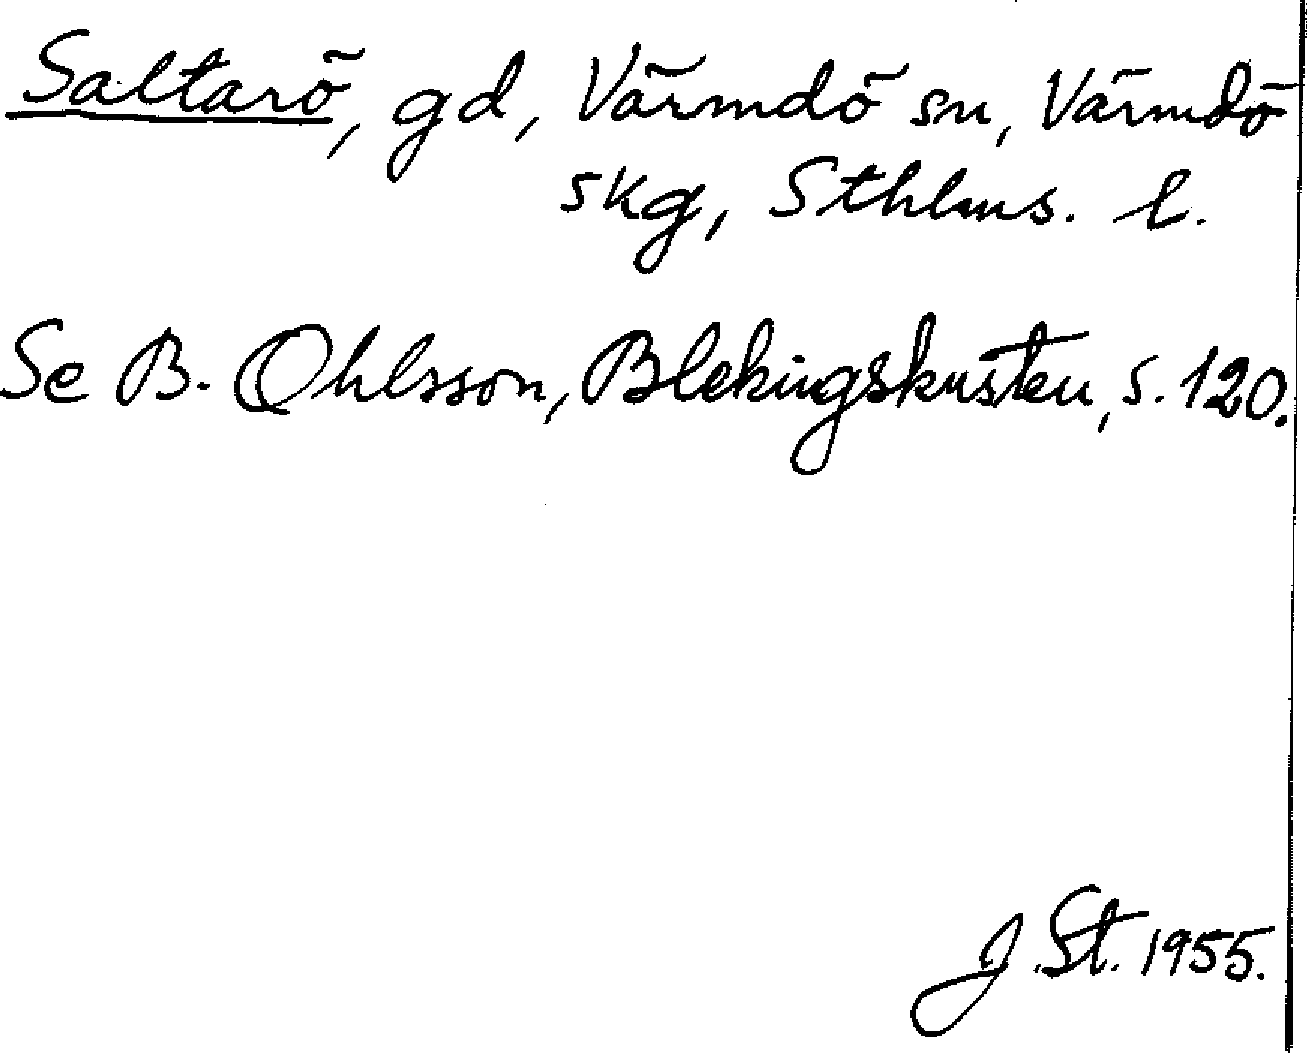 Saltarö, gd, Värmdö sn, Värmdö
skg, Sthlms. l.
Se B. Ohlsson, Blekingskusten, s. 120.
J. St. 1955.